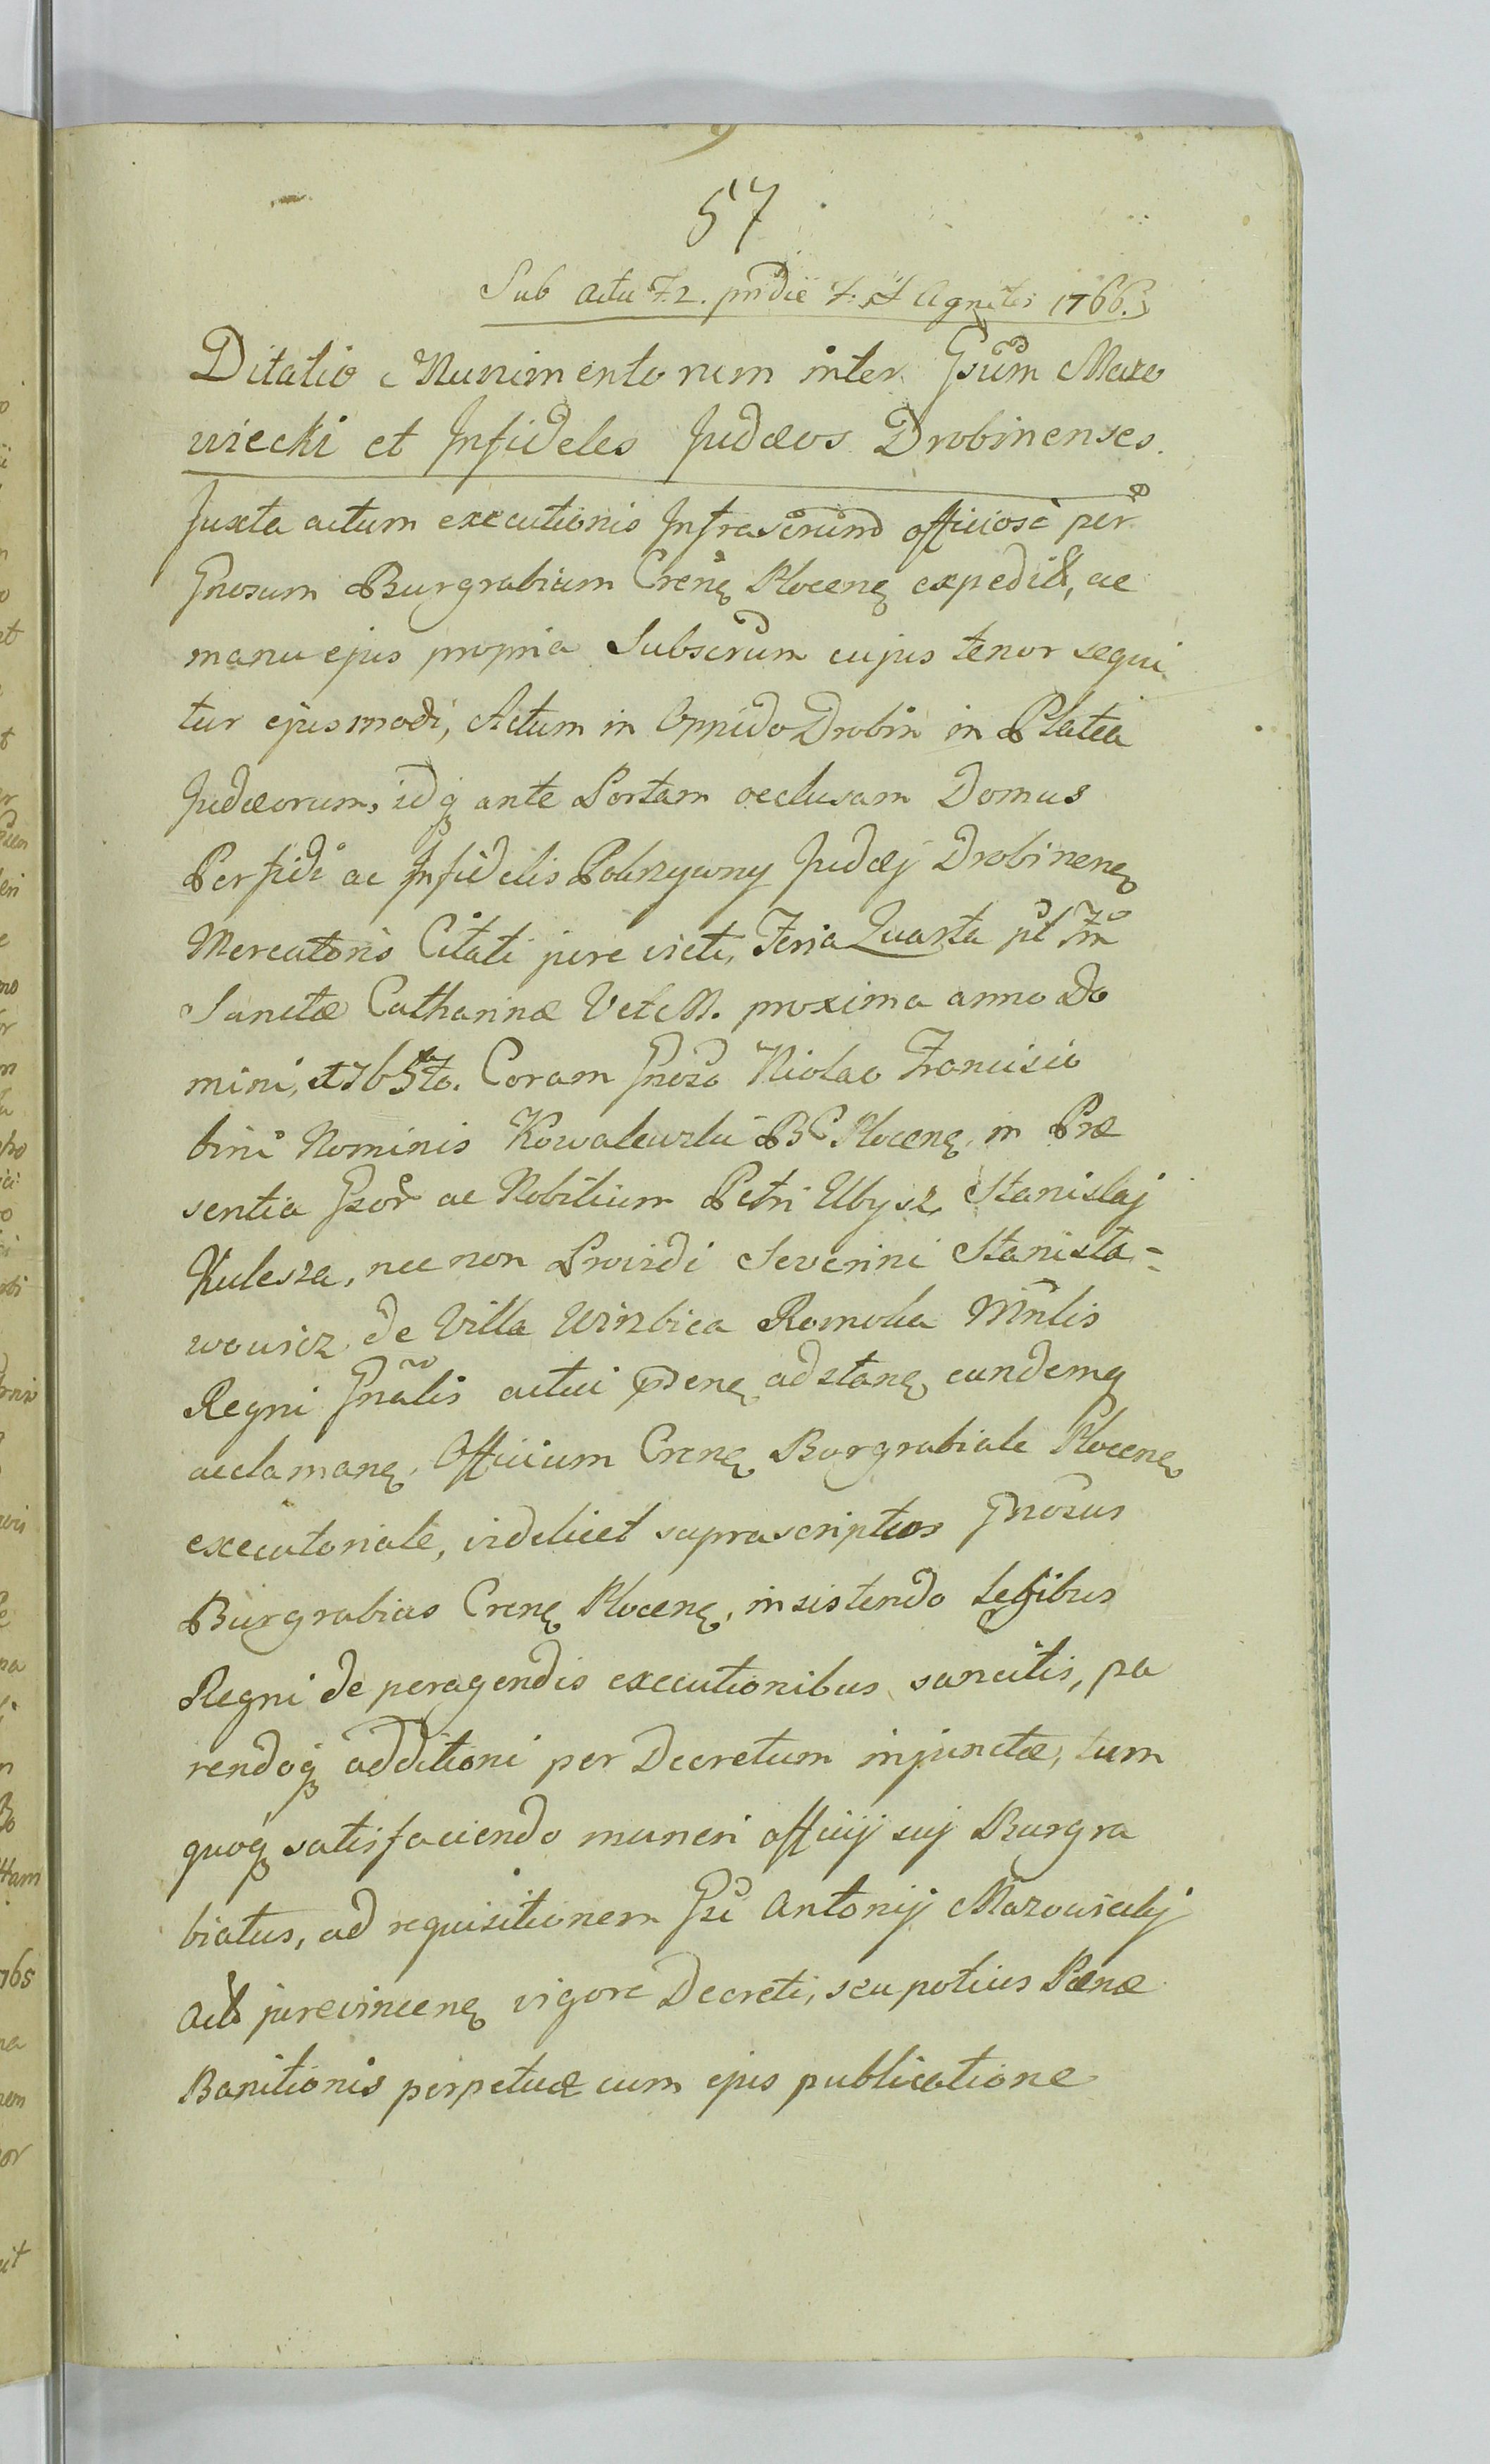 57
Sub Actu F. 2. pridie F. S. Agnetis 1766.
Ditatio Munimentorum inter Gsum Mazo
wiecki et Infideles Judæos Drobinenses.
Juxta actum executionis Infrascrum officiose per
Gnosum Burgrabium Crenę Plocenę expedit, ac
manu ejus propria Subscrum cujus tenor sequi
tur ejusmodi, Actum in Oppido Drobin in Platea
Judæorum, idq ante Portam occlusam Domus
Perfidi ac Infidelis Pokrzywny Judæj Drobinenę
Mercatoris Citati jure victi, Feria Quarta pt Fm
Sanctæ Catharinæ V et M. proxima anno Do
mini, 1765to. Coram Gnoso Niolao Francisco
bini Nominis Kowalewski BC Plocenę, in Præ
sentia Gsor ac Nobilium Petri Ubysz, Stanislaj
Kulesza, nec non Providi Severini Stanisła=
wowicz de Villa Wirzbica Romoka Mnlis
Regni Gnalis actui pdenę adstanę eundemq
acclamanę, Officium Crenę Burgrabiale Plocenę
executoriale, videlicet suprascriptus Gnosus
Burgrabius Crenę Plocenę, insistendo Legibus
Regni de peragendis executionibus sancitis, pa
rendoq additioni per Decretum injunctæ, tum
quoq satisfaciendo muneri officij suj Burgra
biatus, ad requisitionem Gsi Antonij Mazowieckj
Act jurevincenę vigore Decreti, seu potius Pænæ
Banitionis perpetuæ cum ejus publicatione